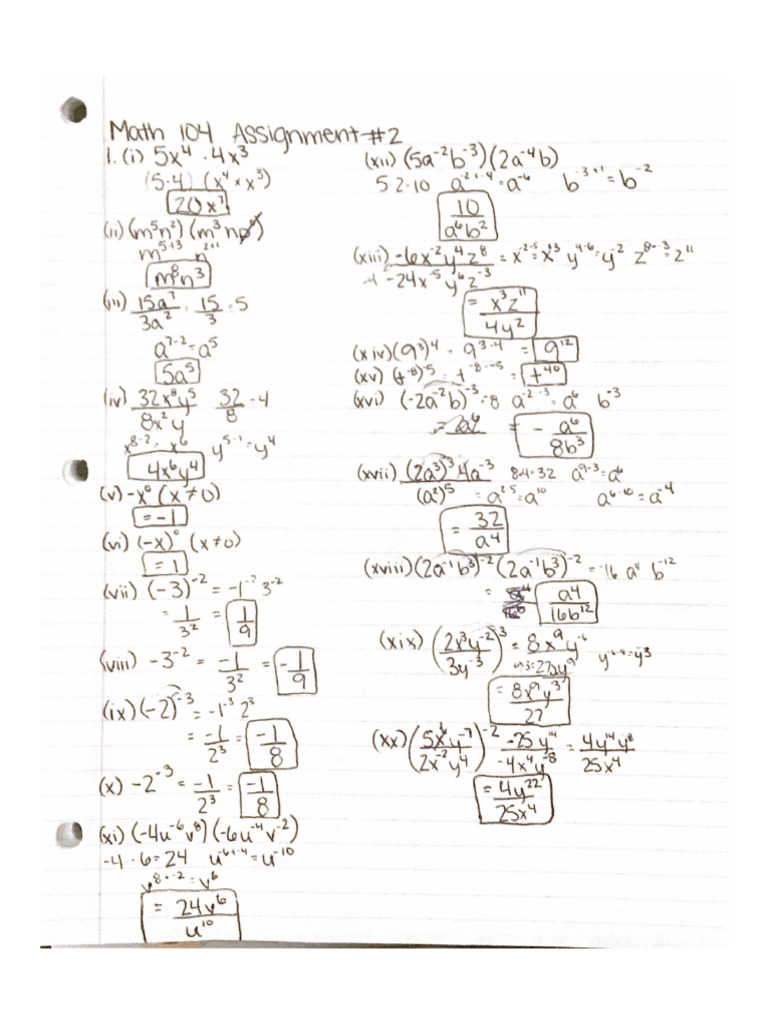 Math 104 Assignment #2
1. (i) 5x⁴ · 4x³
(5·4) (x⁴ · x³)
20x⁷
(ii) (m⁵n²) (m³n)
m⁵⁺³ n²⁺¹
m⁸n³
(iii) 15a⁷/3a² · 15/3 = 5
a⁷⁻² = a⁵
5a⁵
(iv) 32x⁸y⁵/8x²y 32/8 = 4
x⁸⁻² = x⁶ y⁵⁻¹ = y⁴
4x⁶y⁴
(v) -x⁰ (x ≠ 0)
= -1
(vi) (-x)⁰ (x≠0)
= 1
(vii) (-3)⁻² = -1⁻² 3⁻²
= 1/3² = 1/9
(viii) -3⁻² = -1/3² = -1/9
(ix) (-2)⁻³ = -1⁻³ 2³
= -1/2³ = -1/8
(x) -2⁻³ = -1/2³ = -1/8
(xi) (-4u⁻⁶v⁸)(-6u⁻⁴v⁻²)
-4 · -6 = 24 u⁻⁶⁺⁻⁴ = u⁻¹⁰
v⁸⁺⁻² = v⁶
= 24v⁶/u¹⁰
(xii) (5a⁻²b⁻³)(2a⁻⁴b)
5·2=10 a⁻²⁺⁻⁴ = a⁻⁶ b⁻³⁺¹ = b⁻²
10/a⁶b²
(xiii) -6x⁻²y⁴z⁸/-24x⁻⁵y⁶z⁻³ = x²⁻⁵ = x³ y⁴⁻⁶ = y⁻² z⁸⁻⁻³ = z¹¹
= x³z¹¹/4y²
(xiv) (9³)⁴ = 9³·⁴ = 9¹²
(xv) (t⁻⁸)⁻⁵ = t⁻⁸·⁻⁵ = t⁴⁰
(xvi) (-2a⁻²b)⁻³ = 8 a²·⁻³ = a⁶ b⁻³
= - a⁶/8b³
(xvii) (2a³)³ 4a⁻³/(a²)⁵ 8·4=32 a⁹⁻³ = a⁶
= a²·⁵ = a¹⁰ a⁶⁻¹⁰ = a⁻⁴
= 32/a⁴
(xviii) (2a⁻¹b³)⁻² (2a⁻¹b³)⁻² = 16 a⁴ b⁻¹²
= a⁴/16b¹²
(xix) (2x³y⁻²/3y⁻³)³ = 8x⁹y⁻⁶
= 8x⁹y³/27
(xx) (5x⁶y⁻⁷/2x⁻²y⁴)⁻² -25y¹⁴/-4x⁴y⁻⁸ = 4y¹⁴y⁸/25x⁴
= 4y²²/25x⁴